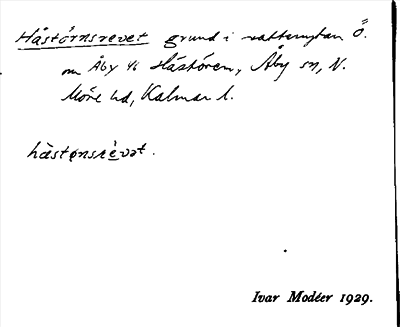 Håstörnsrevet grund i vattenytan Ö.
om Åby vid Håstören, Åby sn, N.
Möre hd, Kalmar l.
håstønsrèvət.
Ivar Modéer 1929.